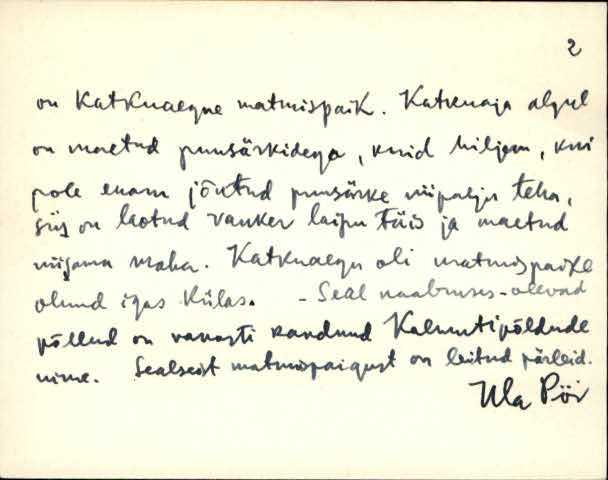 2
on Katkuaegne matmispaik. Katkuaja algul
on maetud puusärkidega, kuid hiljem, kui
pole enam jõutud puusärke niipalju teha,
siis on laotud vanker laipu täis ja maetud
niisama maha. Katkuaegu oli matmispaike
olnud igas külas. - Seal naabruses-olevad
põllud on vanasti kandnud Kalmutipõldude
nime. Sealseist matmispaigust on leitud pärleid.